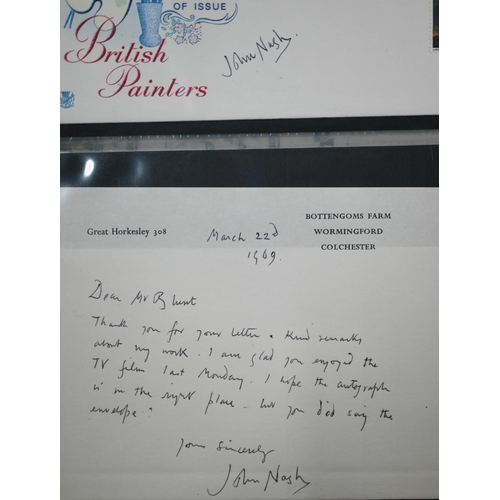 OF ISSUE
British
Painters
John Nash
Great Horkesley 308
BOTTENGOMS FARM
WORMINGFORD
COLCHESTER
March 22d
1969.
Dear Mr Blunt
Thank you for your letter & kind remarks
about my work. I am glad you enjoyed the
TV film last Monday. I hope the autograph
is in the right place - but you did say the
envelope?
Yours sincerely
John Nash